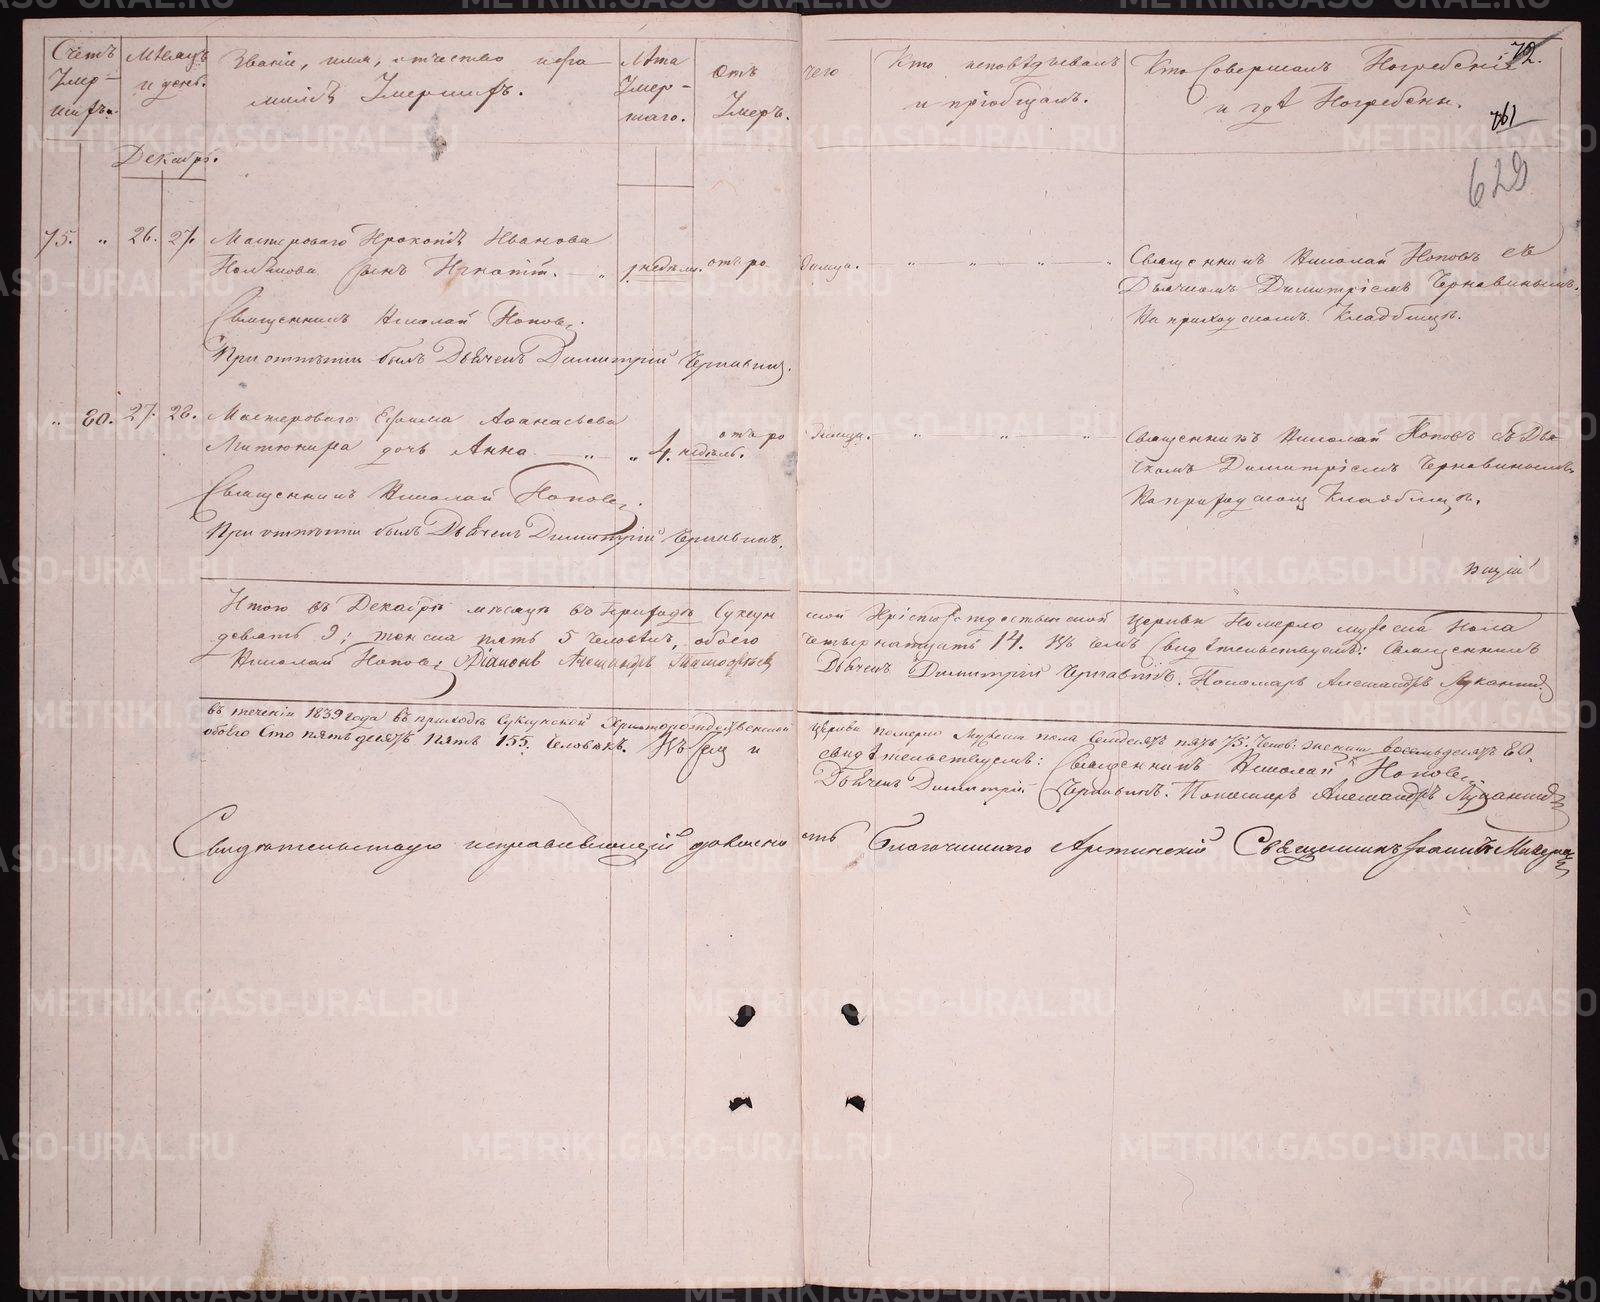 Счетъ Умер-шихъ.
Мѣсяцъ и день.
Званіе, имя, отчество и фамилія Умершихъ.
Лѣта Умер-шаго.
Отъ чего Умеръ.
Кто исповѣдывалъ и пріобщалъ.
Кто Совершалъ Погребеніе и гдѣ Погребены.
72.
761
629
Декабрь.
75. " 26. 27. Мастероваго Прокопія Иванова
сынъ Игнатій. " 1 недѣли. отъ родимца. " " " "
Священникъ Николай Поповъ съ
Дьячкомъ Димитріемъ Чернавинымъ.
На приходскомъ Кладбищѣ.
Священникъ Николай Поповъ.
При отпѣтіи былъ Дьячекъ Димитрій Чернавинъ.
" 80. 27. 28. Мастероваго Ефима Афанасьева
дочь Анна. " " 4. недѣль. отъ родимца. " " "
Священникъ Николай Поповъ съ Дья-
чкомъ Димитріемъ Чернавинымъ
На приходскомъ Кладбищѣ.
Священникъ Николай Поповъ.
При отпѣтіи былъ Дьячекъ Димитрій Чернавинъ.
Итого въ Декабрѣ мѣсяцѣ въ Приходѣ Суксунской Христорождественской Церкви Померло мужеска пола
девять 9; женска пять 5 человѣкъ, обоего четырнатцать 14. Въ чемъ Свидѣтельствуемъ: Священникъ
Николай Поповъ; Діаконъ Александръ Тимофѣевъ Дьячекъ Димитрій Чернавинъ. Пономарь Александръ Луканинъ
Въ теченіи 1839 года въ приходѣ Суксунской Христорождественской церкви померло мужеска пола семдесятъ пять 75. челов: женска восемьдесятъ 80.
обоего сто пятьдесятъ пять 155. человѣкъ. Въ чемъ и свидѣтельствуемъ: Священникъ Николай Поповъ
Дьячекъ Димитрій Чернавинъ. Пономарь Александръ Луканинъ
Свидѣтельствую исправляющій должность Благочиннаго Артинскій Священникъ
METRIKI.GASO-URAL.RU